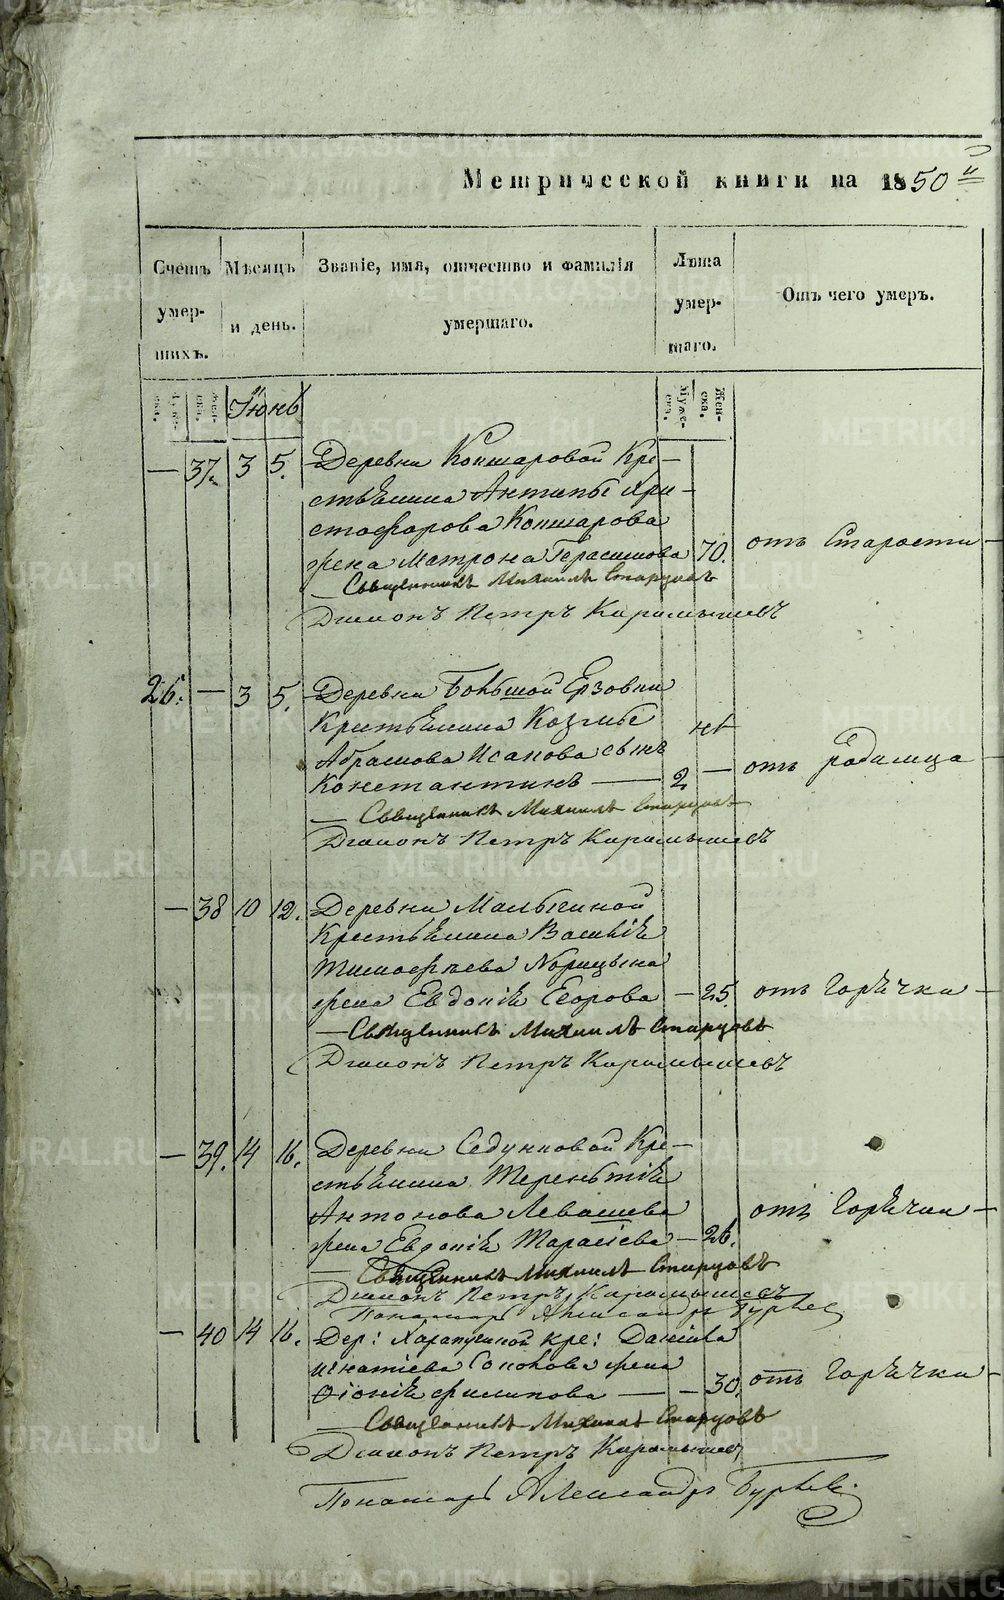 Метрической книги на 1850й
Счетъ умершихъ.
Мѣсяцъ и день.
Званіе, имя, отчество и фамилія умершаго.
Лѣта умершаго.
Отъ чего умеръ.
Мужеска.
Женска.
Іюнь
— 37. 3 5. Деревни Кокшаровой Кре-
стьянина Антипы Хри-
стофорова Кокшарова
жена Матрона Герасимова 70. отъ Старости
Священникъ Михаилъ Старцовъ
Діаконъ Петръ Карамышевъ
26. — 3 5. Деревни Большой Ерзовки
Крестьянина Козмы
Абрамова Исакова сынъ
Константинъ — 2 нѣ — отъ родимца
Священникъ Михаилъ Старцовъ
Діаконъ Петръ Карамышевъ
— 38 10 12. Деревни Малыгиной
Крестьянина Василія
Тимофѣева
жена Евдокія Егорова — 25. отъ Горячки
Священникъ Михаилъ Старцовъ
Діаконъ Петръ Карамышевъ
— 39. 14 16. Деревни Седунковой Кре-
стьянина Терентія
Антонова Левашева
жена Евдокія Тарасіева — 26. отъ Горячки
Священникъ Михаилъ Старцовъ
Діаконъ Петръ Карамышевъ
Пономарь Александръ Гурьев
— 40 14 16. Дер: Харапугиной кре: Даніила
Игнатіева Соколова жена
филипова — — 30. отъ Горячки
Священникъ Михаилъ Старцовъ
Діаконъ Петръ Карамышевъ
Пономарь Александръ Гурьев.
METRIKI.GASO-URAL.RU